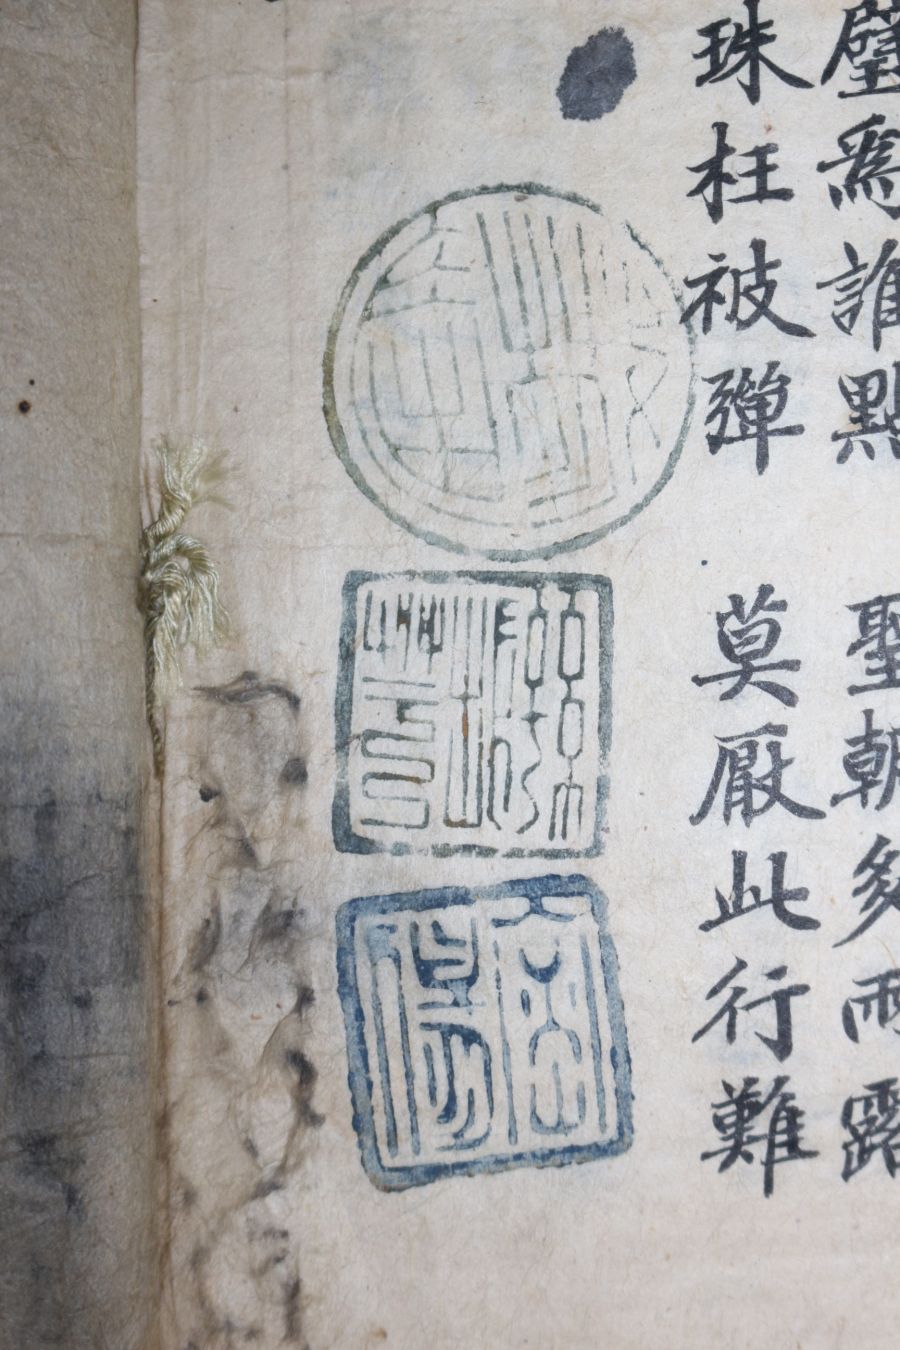 璧爲誰點 聖朝多雨露
珠枉被彈 莫厭此行難